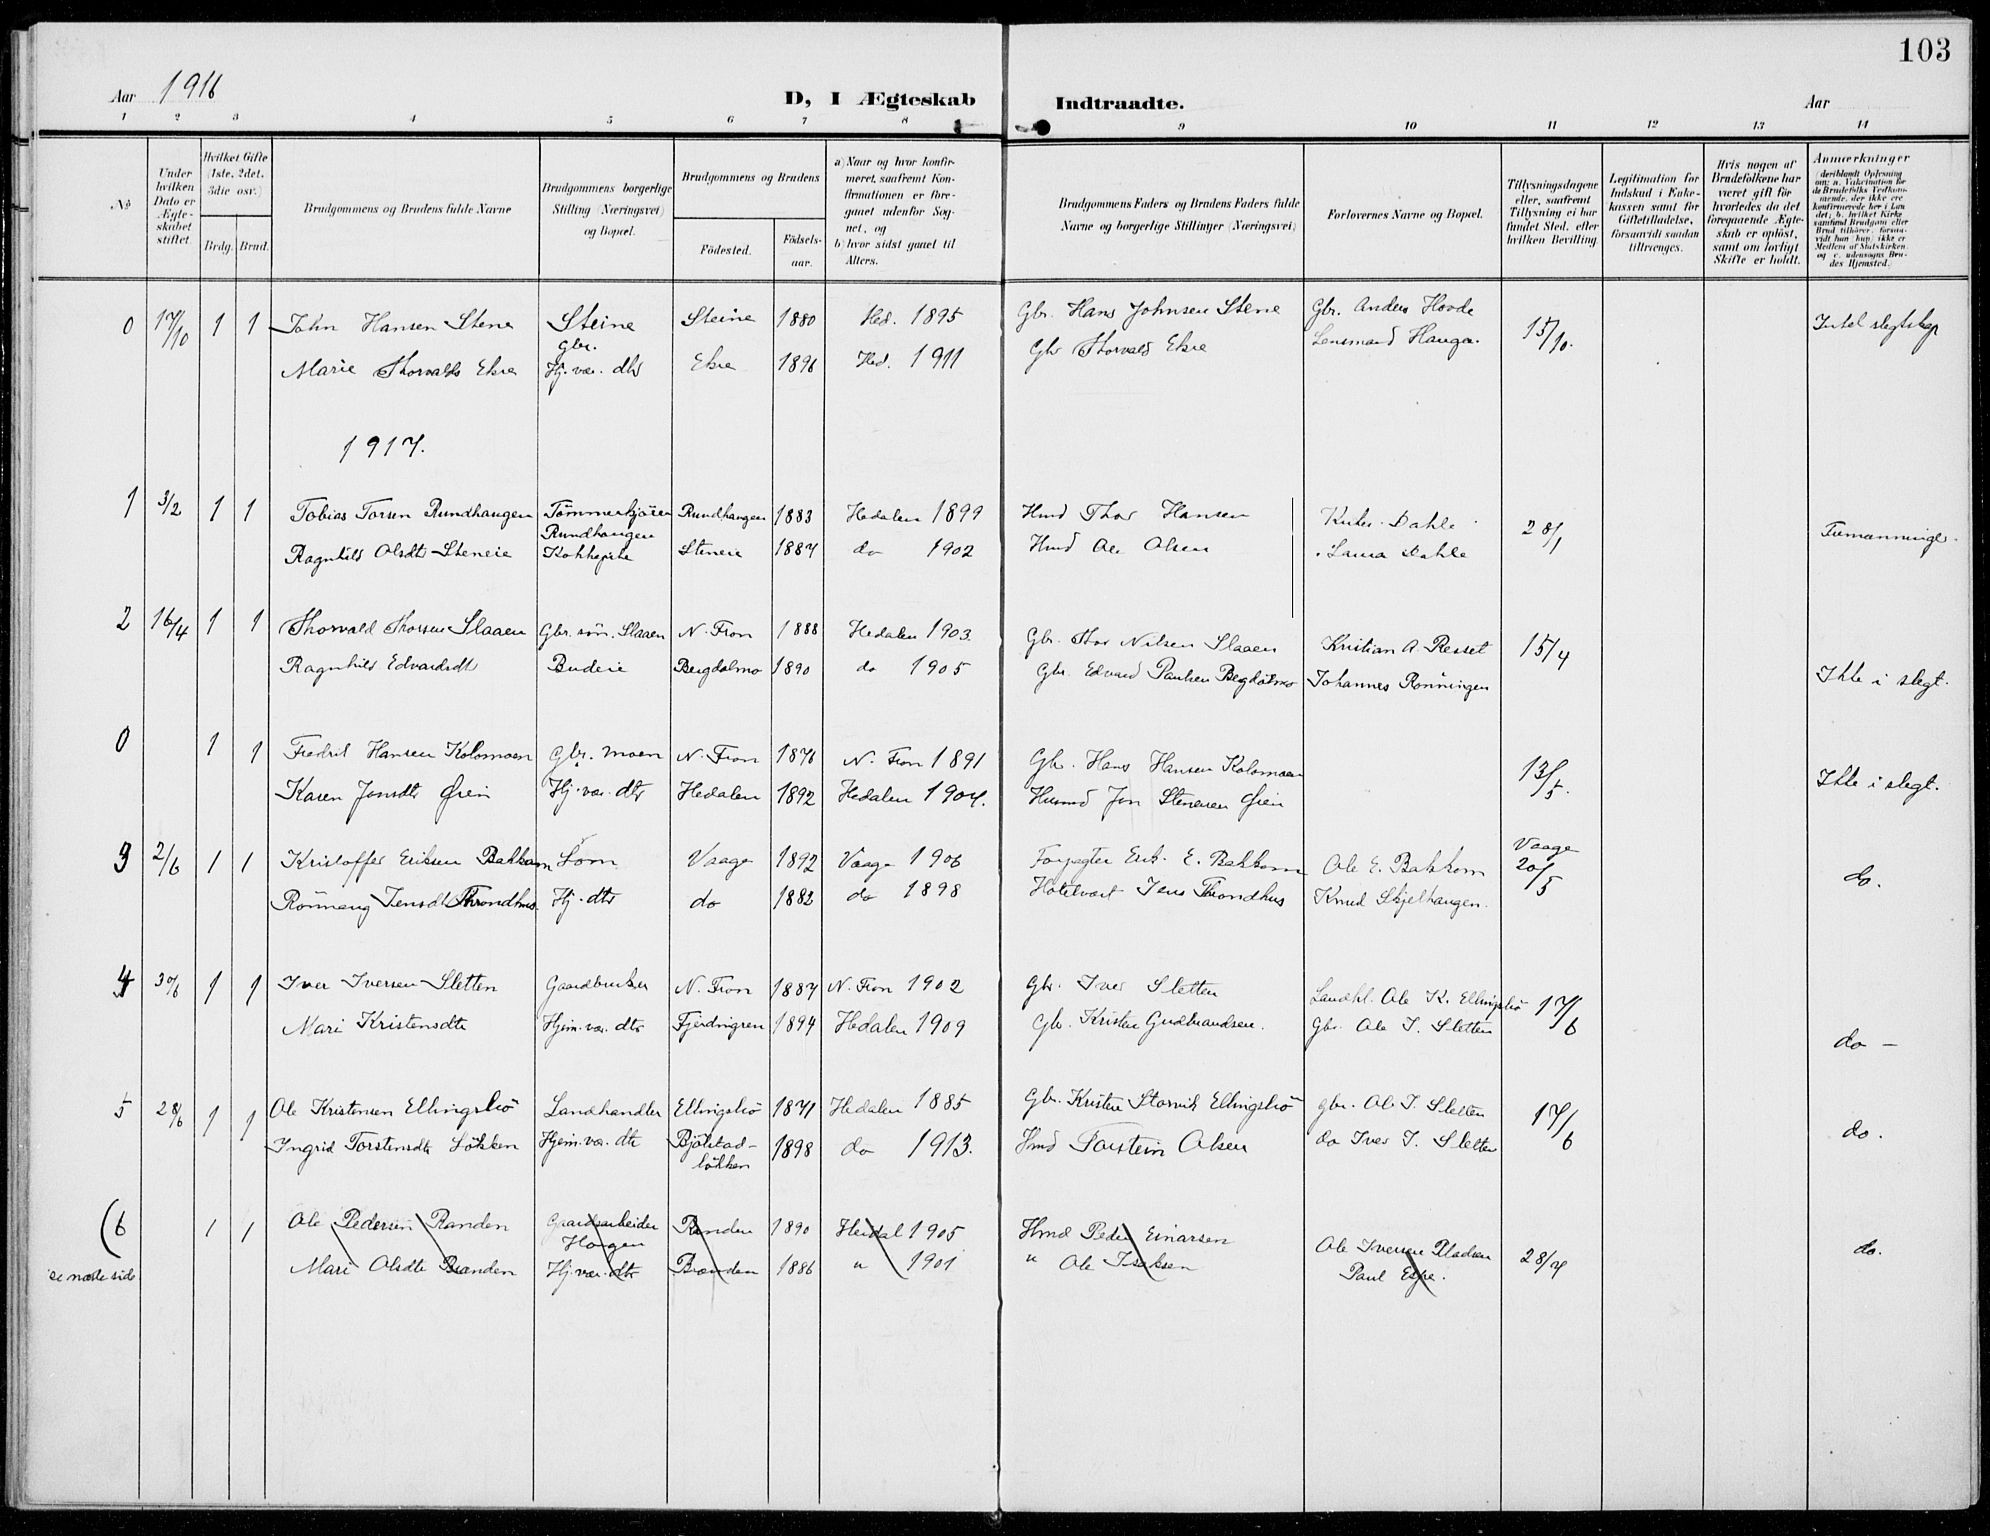 103
Aar 1916 D, I Ægteskab Indtraadte. Aar
1 2 3 4 5 6 7 8 9 10 11 12 13 14
No
Under hvilken Dato er Ægteskabet stiftet.
Hvilket Gifte (1ste, 2det, 3die osv.)
Brdg. Brud.
Brudgommens og Brudens fulde Navne
Brudgommens borgerlige Stilling (Næringsvei) og Bopæl.
Brudgommens og Brudens
Fødested. Fødselsaar.
a) Naar og hvor konfirmeret, saafremt Konfirmationen er foregaaet udenfor Sognet, og
b) hvor sidst gaaet til Alters.
Brudgommens Faders og Brudens Faders fulde Navne og borgerlige Stillinger (Næringsvei)
Forlovernes Navne og Bopæl.
Tillysningsdagene eller, saafremt Tillysning ei har fundet Sted, efter hvilken Bevilling.
Legitimation for Indskud i Enkekassen samt for Giftetilladelse, forsaavidt saadan tiltrænges.
Hvis nogen af Brudefolkene har været gift før hvorledes da det foregaaende Ægteskab er opløst, samt om lovligt Skifte er holdt.
Anmærkninger (deriblandt Oplysning om: a. Vakcination for de Brudefolks Vedkommende, der ikke ere konfirmerede her i Landet; b. hvilket Kirkesamfund Brudgom eller Brud tilhører, forsaavidt han (hun) ikke er Medlem af Statskirken, og c. udensogns Brudes Hjemsted.)
0 17/10 1 1 John Hansen Stene Steine Gbr. Steine 1880 Hed. 1895 Gbr. Hans Johnsen Stene Gbr. Anders Hovde 15/10. Intet slegtskap
Marie Thorvaldsd Ekre Hj. vær. dtr Ekre 1896 Hed. 1911 Gbr Thorvald Ekre Lensmand Haugen.
1917.
1 3/2 1 1 Tobias Torsen Rundhaugen Tømmerkjører Rundhaugen 1883 Hedalen 1899 Hmd Thor Hansen Dahle 28/1 Tremænninger.
Rundhaugen
Ragnhild Olsdt Steneie Kokkepike Steneie 1887 do 1902 Hmd Ole Olsen Laura Dahle
2 16/4 1 1 Thorvald Thorsen Slaaen Gbr. søn. Slaaen N. Fron 1888 Hedalen 1903 Gbr. Thor Nilsen Slaaen Kristian A. Resset 15/4
Ragnhild Edvardsdt Budeie Bergdølmo 1890 do 1905 Gbr. Edvard Paulsen Bergdølmo Johannes Rønningen Ikke i slegt.
0 1 1 Fredrik Hansen Kolomoen Gbr. Moen N. Fron 1876 N. Fron 1891 Gbr. Hans Hansen Kolomoen 13/5. Ikke i slegt.
Karen Jonsdt Øien Hj. vær. dtr Hedalen 1892 Hedalen 1907. Husmd Jon Stenersen Øien
3 2/6 1 1 Kristoffer Eriksen Bakkom Lom Vaage 1892 Vaage 1906 Forpagter Erik E. Bakkom Ole E. Bakkom Vaage 20/5 do.
Rønnaug Jensdt Throndhus. Hj. dtr do 1882 do 1898 Hotelvært Jens Throndhus Knud Skjelhaugen.
4 30/6 1 1 Iver Iversen Sletten Gaardbruker N. Fron 1887 N. Fron 1902 Gbr. Iver Sletten Landhl. Ole K. Ellingsbø 17/6
Mari Kristensdtr Hjem. vær. dtr Fjerdingren 1894 Hedalen 1909 Gbr. Kristen Gudbrandsen. Gbr. Ole I. Sletten do -
5 28/6 1 1 Ole Kristensen Ellingsbø Landhandler Ellingsbø 1871 Hedalen 1885 Gbr. Kristen Storvik Ellingsbø Gbr. Ole I. Sletten 17/6 do.
Ingrid Torstensdtr Løkken Hjem. vær. dtr Bjølstadløkken 1898 do 1913. Hmd Torstein Olsen do Iver I. Sletten
(6 1 1 Ole Pedersen Randen Gaardsarbeider Randen 1890 Heidal 1905 Hmd Peder Einarsen Ole Iversen Pladsen 28/7 do.
Haagen
se næste side Mari Olsdtr Brænden Hj. vær. dtr Brænden 1886 " 1901 " Ole Isaksen Paul Espe.